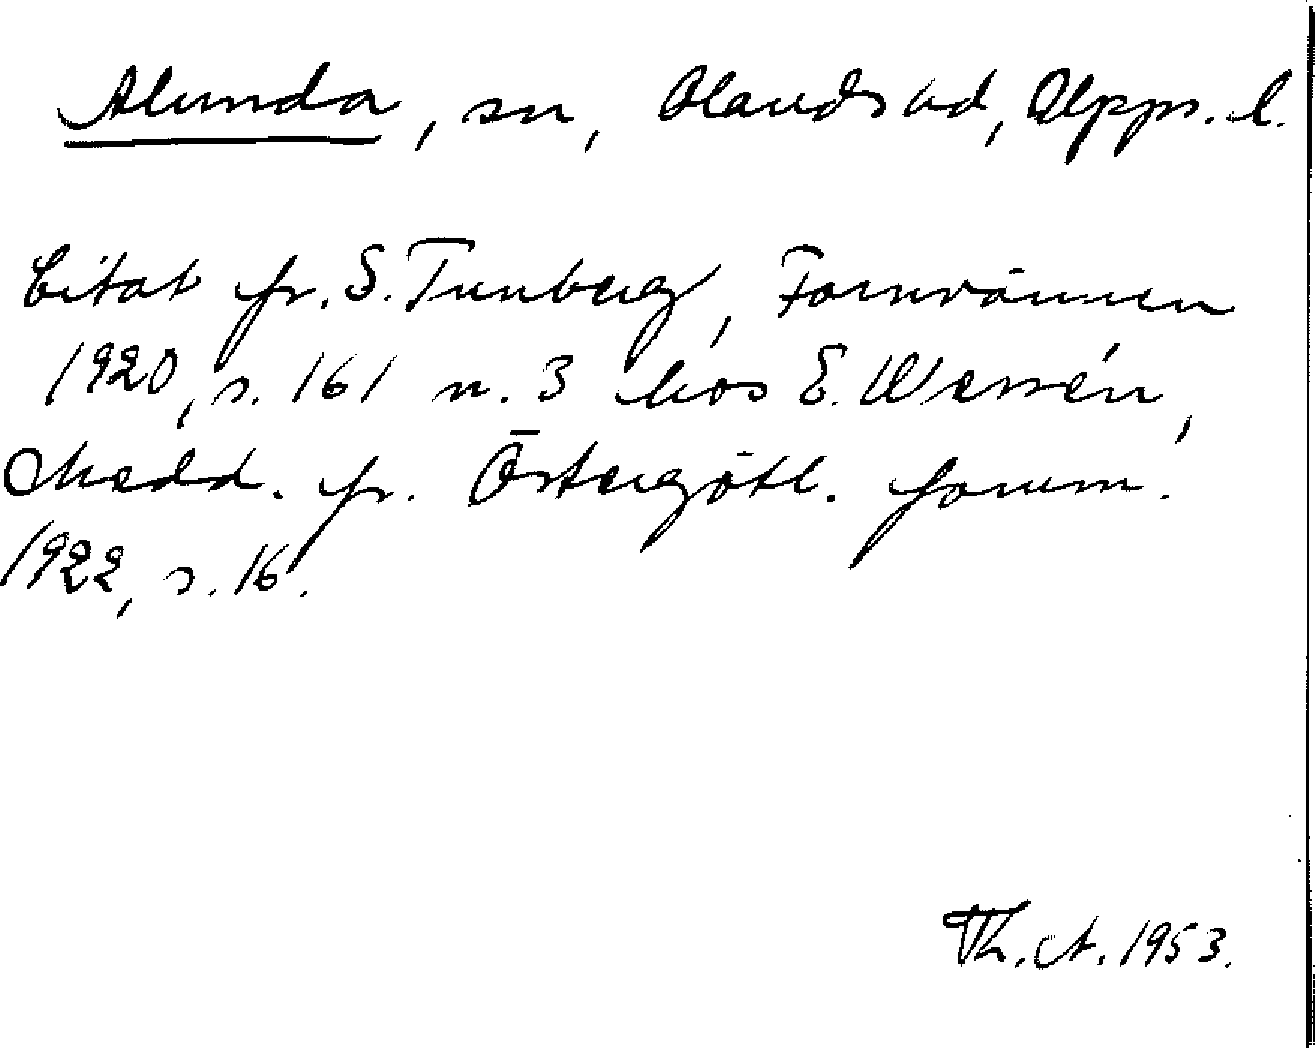 Alunda, sn, Olands hd, Upps. l.
Citat fr. S. Tunberg, Fornvännen
1920, s. 161 n. 3 hos E. Wessén,
Medd. fr. Östergötl. fornm.
1922, s. 16.
Th. A. 1953.